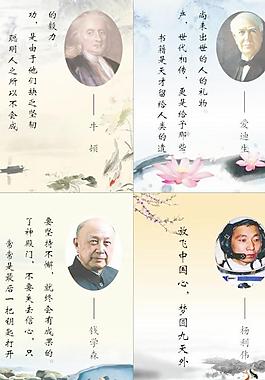 聪明人之所以不会成
功，是由于他们缺乏坚韧
的毅力
——牛顿
书籍是天才留给人类的遗
产，世代相传，更是给予那些
尚未出世的人的礼物
——爱迪生
常常是最后一把钥匙打开
了神殿门。不要失去信心，只
要坚持不懈，就终会有成果的
——钱学森
放飞中国心，梦圆九天外
——杨利伟